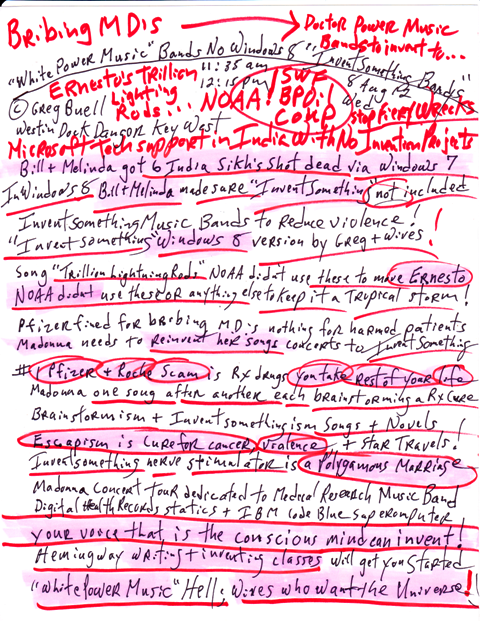 Bribing MDis → Doctor Power Music
Bands to invent to...
"White Power Music" Bands No Windows 8 "Invent Something Bands"
Ernesto's Trillion 11:35 am 8 Aug 12
Lighting 12:15 pm Wed
Rods... NOAA! SWF
BPOil
Coup Stop Fiery Wrecks
© Greg Buell
Westin Dock Dangor Key West
Microsoft tech support in India With No Invention Projects
Bill + Melinda got 6 India Sikh's Shot dead via Windows 7
In Windows 8 Bill + Melinda made sure "Invent Something" not included
Invent something Music Bands to reduce violence!
"Invent something" Windows 8 version by Greg + Wives!
Song "Trillion Lightning Rods" NOAA didnt use these to move Ernesto
NOAA didnt use these or anything else to keep it a Tropical storm!
Pfizer fined for bribing MDis nothing for harmed patients
Madonna needs to reinvent her songs concerts to Invent Something
#1 Pfizer + Roche Scam is Rx drugs you take rest of your life
Madonna one song after another each brainstorming a Rx Cure
Brainstormism + Inventsomethingism Songs + Novels
Escapism is cure for cancer, violence + Star Travels!
Invent something nerve stimulator is a Polygamous Marriage
Madonna Concert Tour dedicated to Medical Research Music Band
Digital Health Records statics + IBM Code Blue superomputer
your voice that is the conscious mind can invent!
Hemingway writing + inventing classes will get you started
"White Power Music" Hell; Wives who want the Universe!